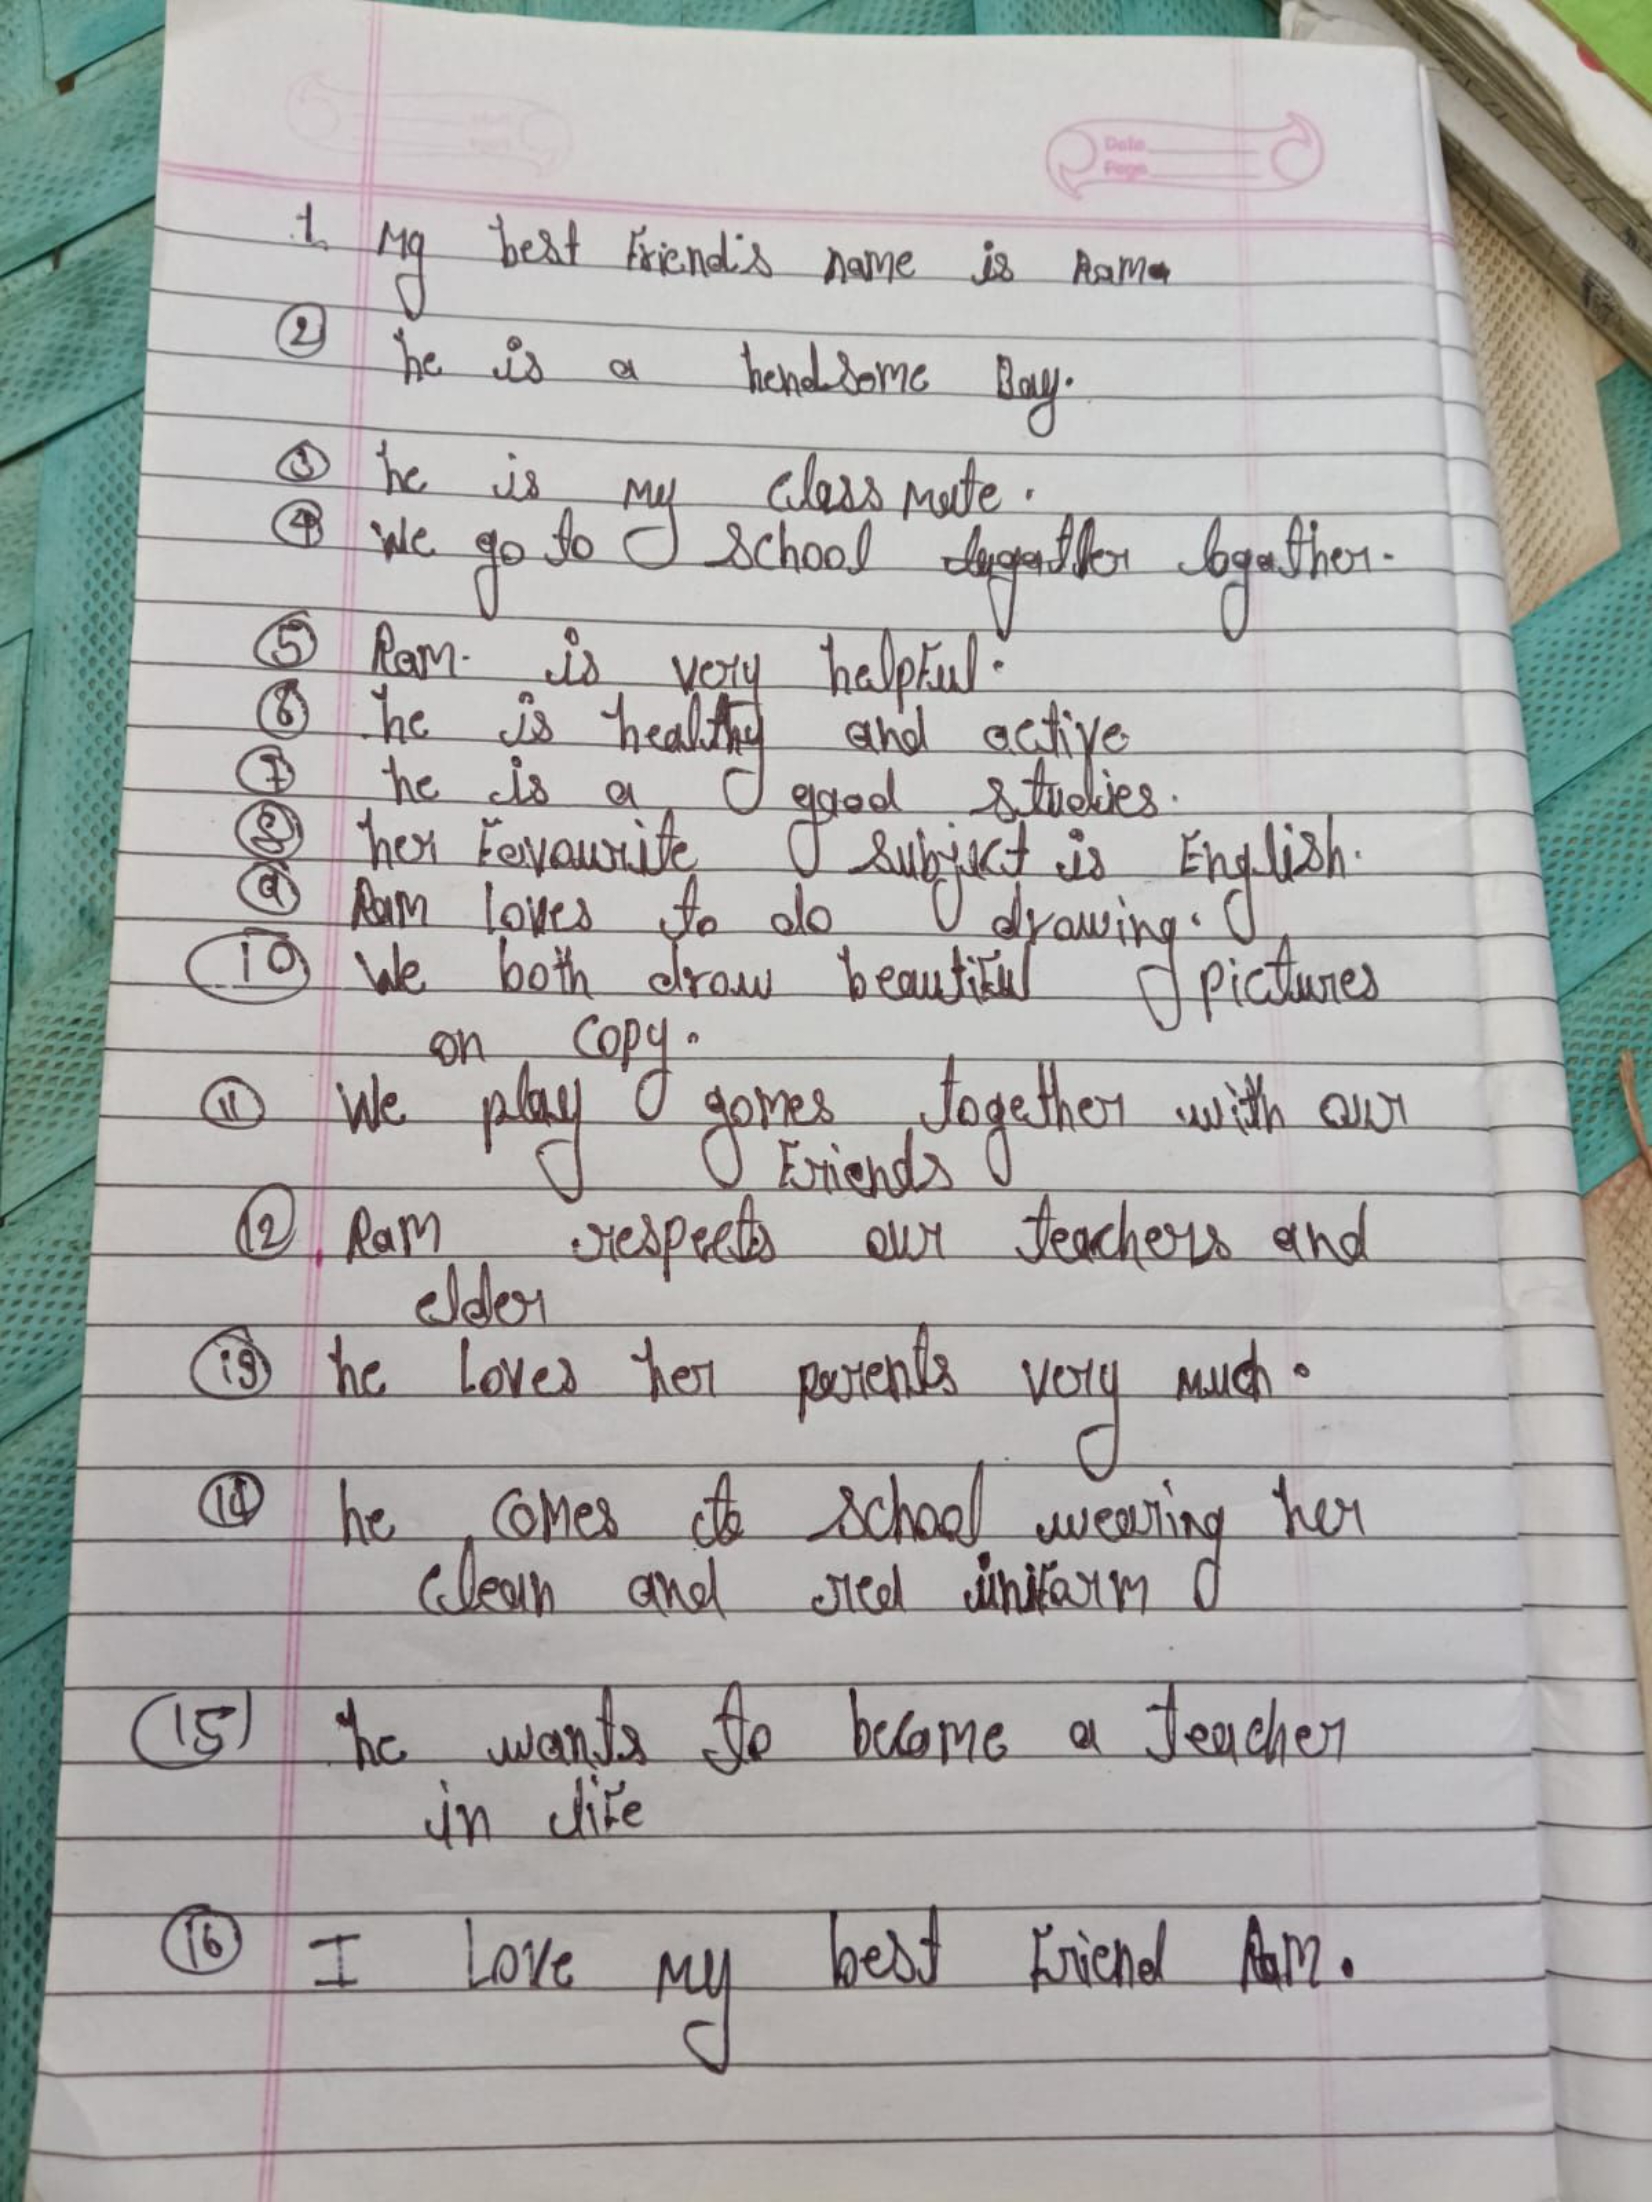 Date
Page
1. My best Friend's name is Ram
② he is a hendsome Boy.
③ he is my class mate.
④ We go to school togather.
⑤ Ram is very helpful.
⑥ he is healthy and active
⑦ he is a good studies.
⑧ her Favourite subject is English.
⑨ Ram loves to do drawing.
⑩ We both draw beautiful pictures
on copy.
⑪ We play games together with our
Friends
⑫ Ram respects our teachers and
elder
⑬ he loves her parents very much.
⑭ he comes to school wearing her
clean and red uniform
⑮ he wants to become a teacher
in life
⑯ I Love my best Friend Ram.